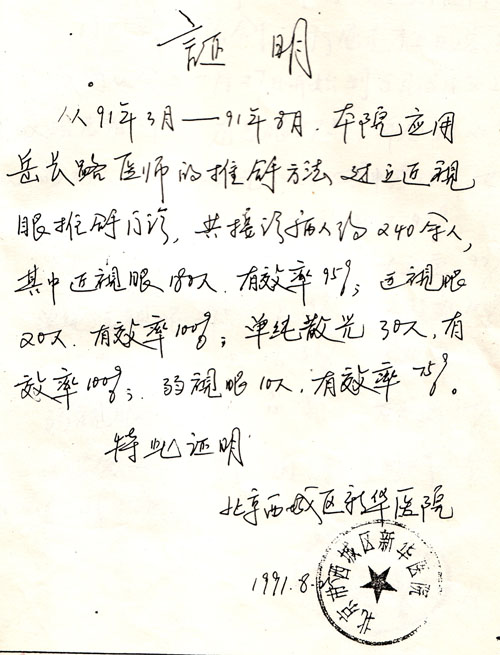 證明
从91年3月—91年8月.本院应用
岳长路医师的推拿方法建立近视
眼推拿门诊,共接诊病人约240余人,
其中近視眼180人.有效率95%;远視眼
20人.有效率100%;单纯散光30人,有
效率100%;弱視眼10人,有效率75%。
特此证明
北京西城区新华医院
1991.8.
北京市西城区新华医院